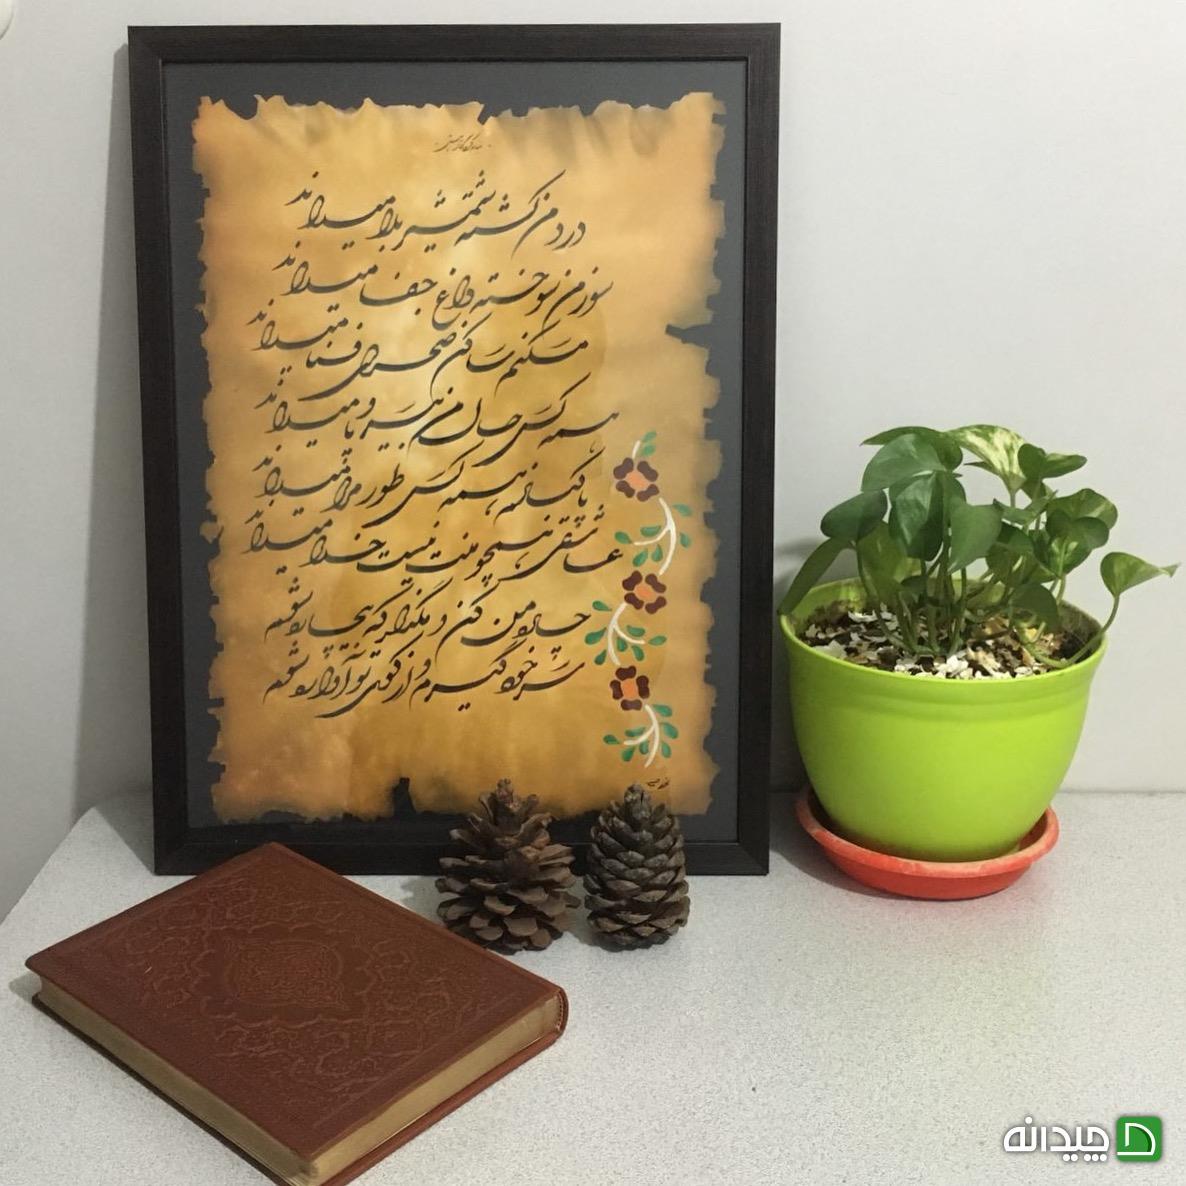 درد من کشته شمشیر بلا میداند
سوز من سوخته داغ جفا میداند
مسکنم ساکن صحرای فنا میداند
همه کس حال من بی سر و پا میداند
پاکبازم همه کس طور مرا میداند
عاشقی همچو منت نیست خدا میداند
چاره من کن و مگذار که بیچاره شوم
سر خود گیرم و از کوی تو آواره شوم
چیدانه